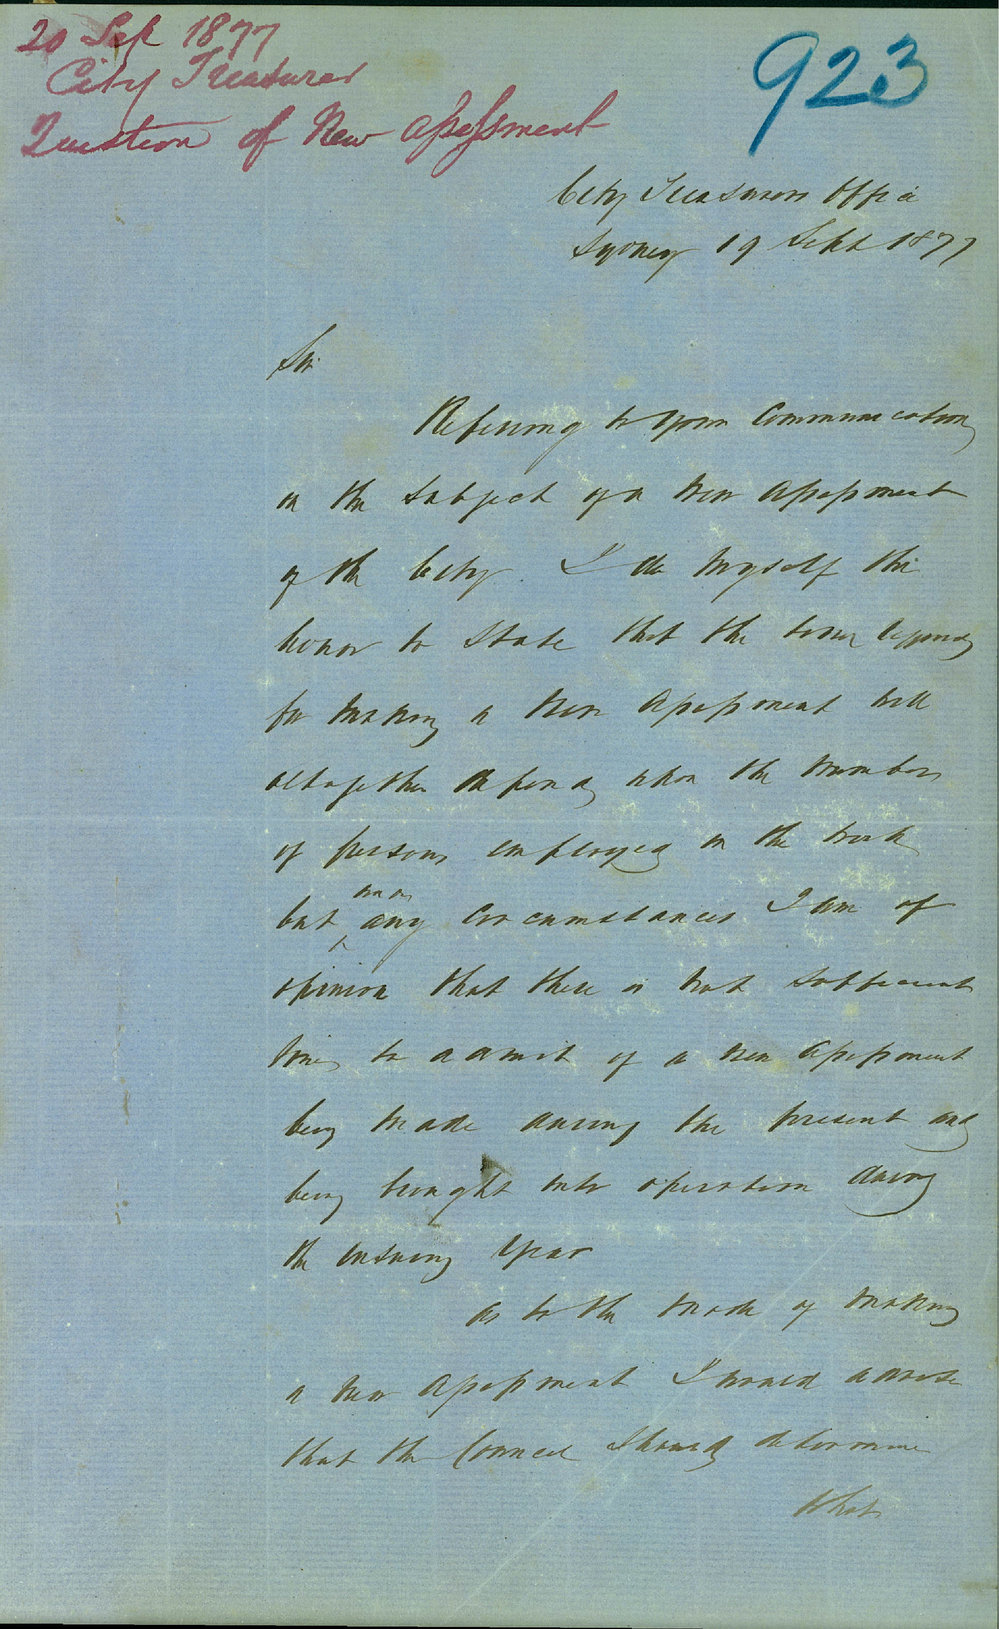 20 Sep 1877
City Treasurer
Question of New Assessment
923
City Treasurers Office
Sydney 19 Sept 1877
Sir
Referring to your Communication
on the subject of a New Assessment
of the City. I do myself the
honor to State that the time required
for making a New Assessment will
altogether depend upon the number
of persons employed in the work
but under any Circumstances I am of
opinion that there is not sufficient
time to admit of a new Assessment
being made during the present and
being brought into operation during
the ensuing Year
As to the mode of making
a New Assessment I would advise
that the Council Should determine
what